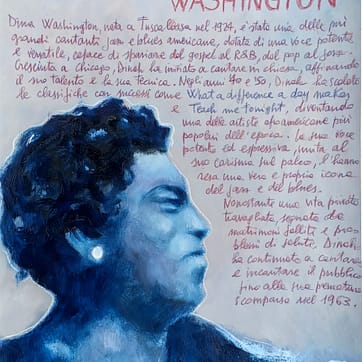 WASHINGTON
Dina Washington, nata a Tuscaloosa nel 1924, è stata una delle più
grandi cantanti jazz e blues americane, dotata di una voce potente
e versatile, capace di spaziare dal gospel al R&B, dal pop al jazz.
Cresciuta a Chicago, Dinah ha iniziato a cantare in chiesa, affinando
il suo talento e la sua tecnica. Negli anni '40 e '50, Dinah ha scalato
le classifiche con successi come What a difference a day makes
e Teach me tonight, diventando
una delle artiste afroamericane più
popolari dell'epoca. La sua voce
potente ed espressiva, unita al
suo carisma sul palco, l'hanno
resa una vera e propria icona
del jazz e del blues.
Nonostante una vita privata
travagliata, segnata da
matrimoni falliti e pro-
blemi di salute, Dinah
ha continuato a cantare
e incantare il pubblico
fino alla sua prematura
scomparsa nel 1963.